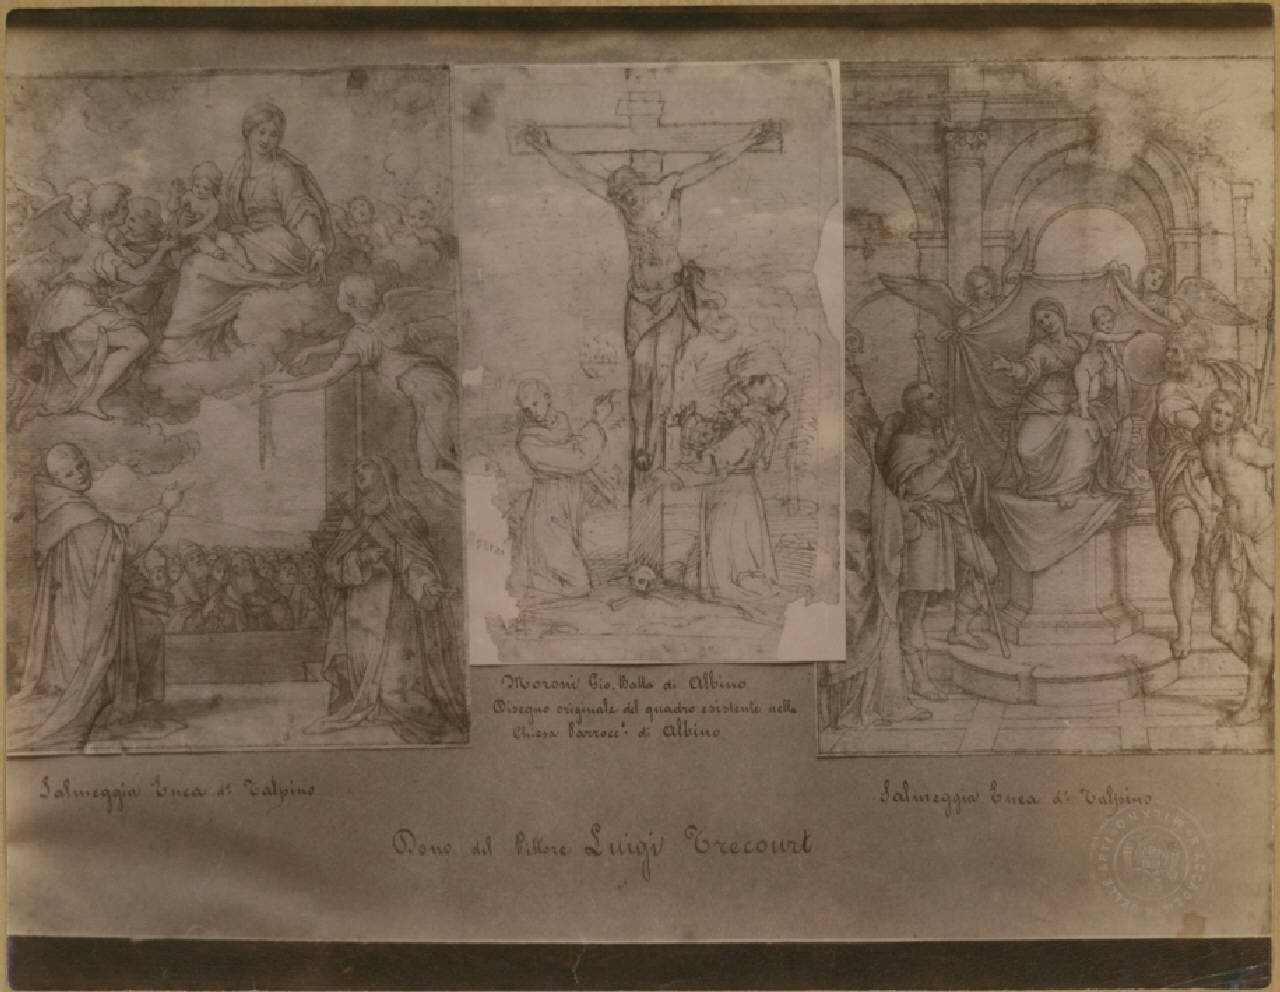 Moroni Gio. Batta di Albino
Disegno originale del quadro esistente nella
Chiesa Parrocc.ˡ di Albino
Salmeggia Enea d.º Talpino
Salmeggia Enea d.º Talpino
Dono del Pittore Luigi Trecourt